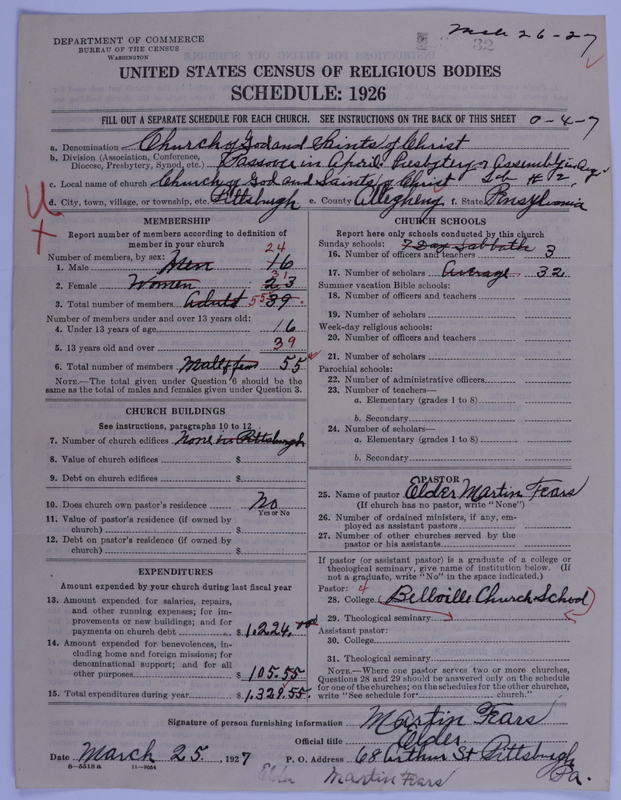 Mch 26-27
32
DEPARTMENT OF COMMERCE
BUREAU OF THE CENSUS
WASHINGTON
UNITED STATES CENSUS OF RELIGIOUS BODIES
SCHEDULE: 1926
FILL OUT A SEPARATE SCHEDULE FOR EACH CHURCH. SEE INSTRUCTIONS ON THE BACK OF THIS SHEET
0-4-7
a. Denomination Church of God and Saints of Christ
b. Division (Association, Conference, Diocese, Presbytery, Synod, etc.) Passover in April. Presbytery or Assembly in
c. Local name of church Church of God and Saints of Christ Tab # 2,
d. City, town, village, or township, etc. Pittsburgh e. County Allegheny f. State Pensylvania
MEMBERSHIP
Report number of members according to definition of member in your church
Number of members, by sex:
24
1. Male Men 16
31
2. Female Women 23
3. Total number of members Adults 55 39
Number of members under and over 13 years old:
4. Under 13 years of age 16
5. 13 years old and over 39
6. Total number of members Male & fem 55
NOTE.—The total given under Question 6 should be the same as the total of males and females given under Question 3.
CHURCH BUILDINGS
See instructions, paragraphs 10 to 12
7. Number of church edifices None in Pittsburgh
8. Value of church edifices $
9. Debt on church edifices $
10. Does church own pastor's residence No
Yes or No
11. Value of pastor's residence (if owned by church) $
12. Debt on pastor's residence (if owned by church) $
EXPENDITURES
Amount expended by your church during last fiscal year
13. Amount expended for salaries, repairs, and other running expenses; for improvements or new buildings; and for payments on church debt $ 1,224.00
14. Amount expended for benevolences, including home and foreign missions; for denominational support; and for all other purposes $ 105.55
15. Total expenditures during year $ 1,329.55
CHURCH SCHOOLS
Report here only schools conducted by this church
Sunday schools: 7 Day Sabbath
16. Number of officers and teachers 3
17. Number of scholars Average 32
Summer vacation Bible schools:
18. Number of officers and teachers
19. Number of scholars
Week-day religious schools:
20. Number of officers and teachers
21. Number of scholars
Parochial schools:
22. Number of administrative officers
23. Number of teachers—
a. Elementary (grades 1 to 8)
b. Secondary
24. Number of scholars—
a. Elementary (grades 1 to 8)
b. Secondary
PASTOR
25. Name of pastor Elder Martin Fears
(If church has no pastor, write "None")
26. Number of ordained ministers, if any, employed as assistant pastors
27. Number of other churches served by the pastor or his assistants
If pastor (or assistant pastor) is a graduate of a college or theological seminary, give name of institution below. (If not a graduate, write "No" in the space indicated.)
Pastor:
28. College (Bellville Church School)
29. Theological seminary
Assistant pastor:
30. College
31. Theological seminary
NOTE.—Where one pastor serves two or more churches, Questions 28 and 29 should be answered only on the schedule for one of the churches; on the schedules for the other churches, write "See schedule for church."
Signature of person furnishing information Martin Fears
Official title Elder
Date March 25, 1927 P. O. Address 68 Arthur St Pittsburgh Pa.
8—5518a 11—9054
Elder Martin Fears